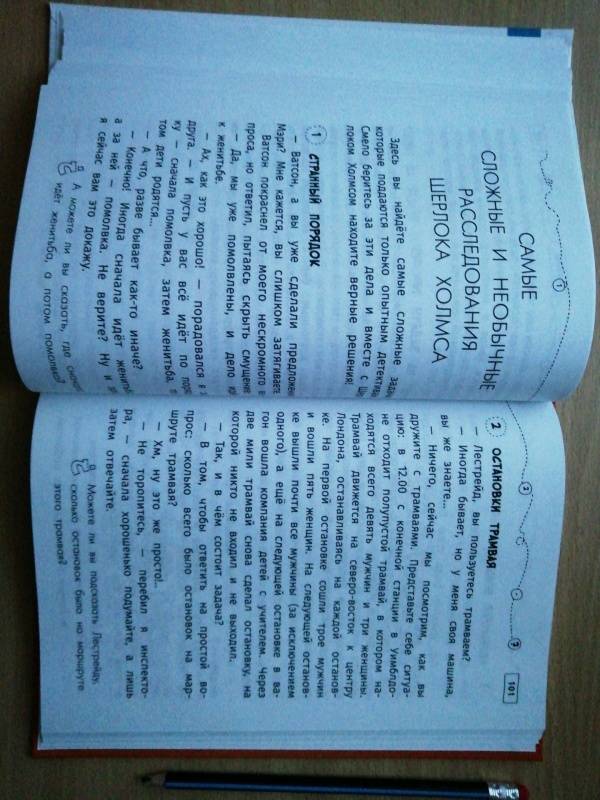 САМЫЕ
СЛОЖНЫЕ И НЕОБЫЧНЫЕ
РАССЛЕДОВАНИЯ
ШЕРЛОКА ХОЛМСА
Здесь вы найдёте самые сложные
которые поддаются только опытным
Смело беритесь за эти дела и вместе с
локом Холмсом находите верные решения!
1 СТРАННЫЙ ПОРЯДОК
– Ватсон, а вы уже сделали
Мэри? Мне кажется, вы слишком
Ватсон покраснел от моего нескромного
проса, но ответил, пытаясь скрыть
– Да, мы уже помолвлены, и дело
к женитьбе.
– Ах, как это хорошо! – порадовался я
друга. – И пусть у вас всё идёт по
ку – сначала помолвка, затем женитьба,
том дети родятся...
– А что, разве бывает как-то иначе?
– Конечно! Иногда сначала идёт
а за ней – помолвка. Не верите? Ну и
я сейчас вам это докажу.
А можете ли вы сказать, где
идёт женитьба, а потом помолвка?
1
3
2
101
2 ОСТАНОВКИ ТРАМВАЯ
– Лестрейд, вы пользуетесь трамваем?
– Иногда бывает, но у меня своя машина,
вы же знаете...
– Ничего, сейчас мы посмотрим, как вы
дружите с трамваями. Представьте себе ситуа-
цию: в 12.00 с конечной станции в Уимблдо-
не отходит полупустой трамвай, в котором на-
ходятся всего девять мужчин и три женщины.
Трамвай движется на северо-восток к центру
Лондона, останавливаясь на каждой останов-
ке. На первой остановке сошли трое мужчин
и вошли пять женщин. На следующей останов-
ке вышли почти все мужчины (за исключением
одного), а ещё на следующей остановке в ва-
гон вошла компания детей с учителем. Через
две мили трамвай снова сделал остановку, на
которой никто не входил и не выходил.
– Так, и в чём состоит задача?
– В том, чтобы ответить на простой во-
прос: сколько всего было остановок на мар-
шруте трамвая?
– Хм, ну это же просто!...
– Не торопитесь, – перебил я инспекто-
ра, – сначала хорошенько подумайте, а лишь
затем отвечайте.
Можете ли вы подсказать Лестрейду,
сколько остановок было на маршруте
этого трамвая?